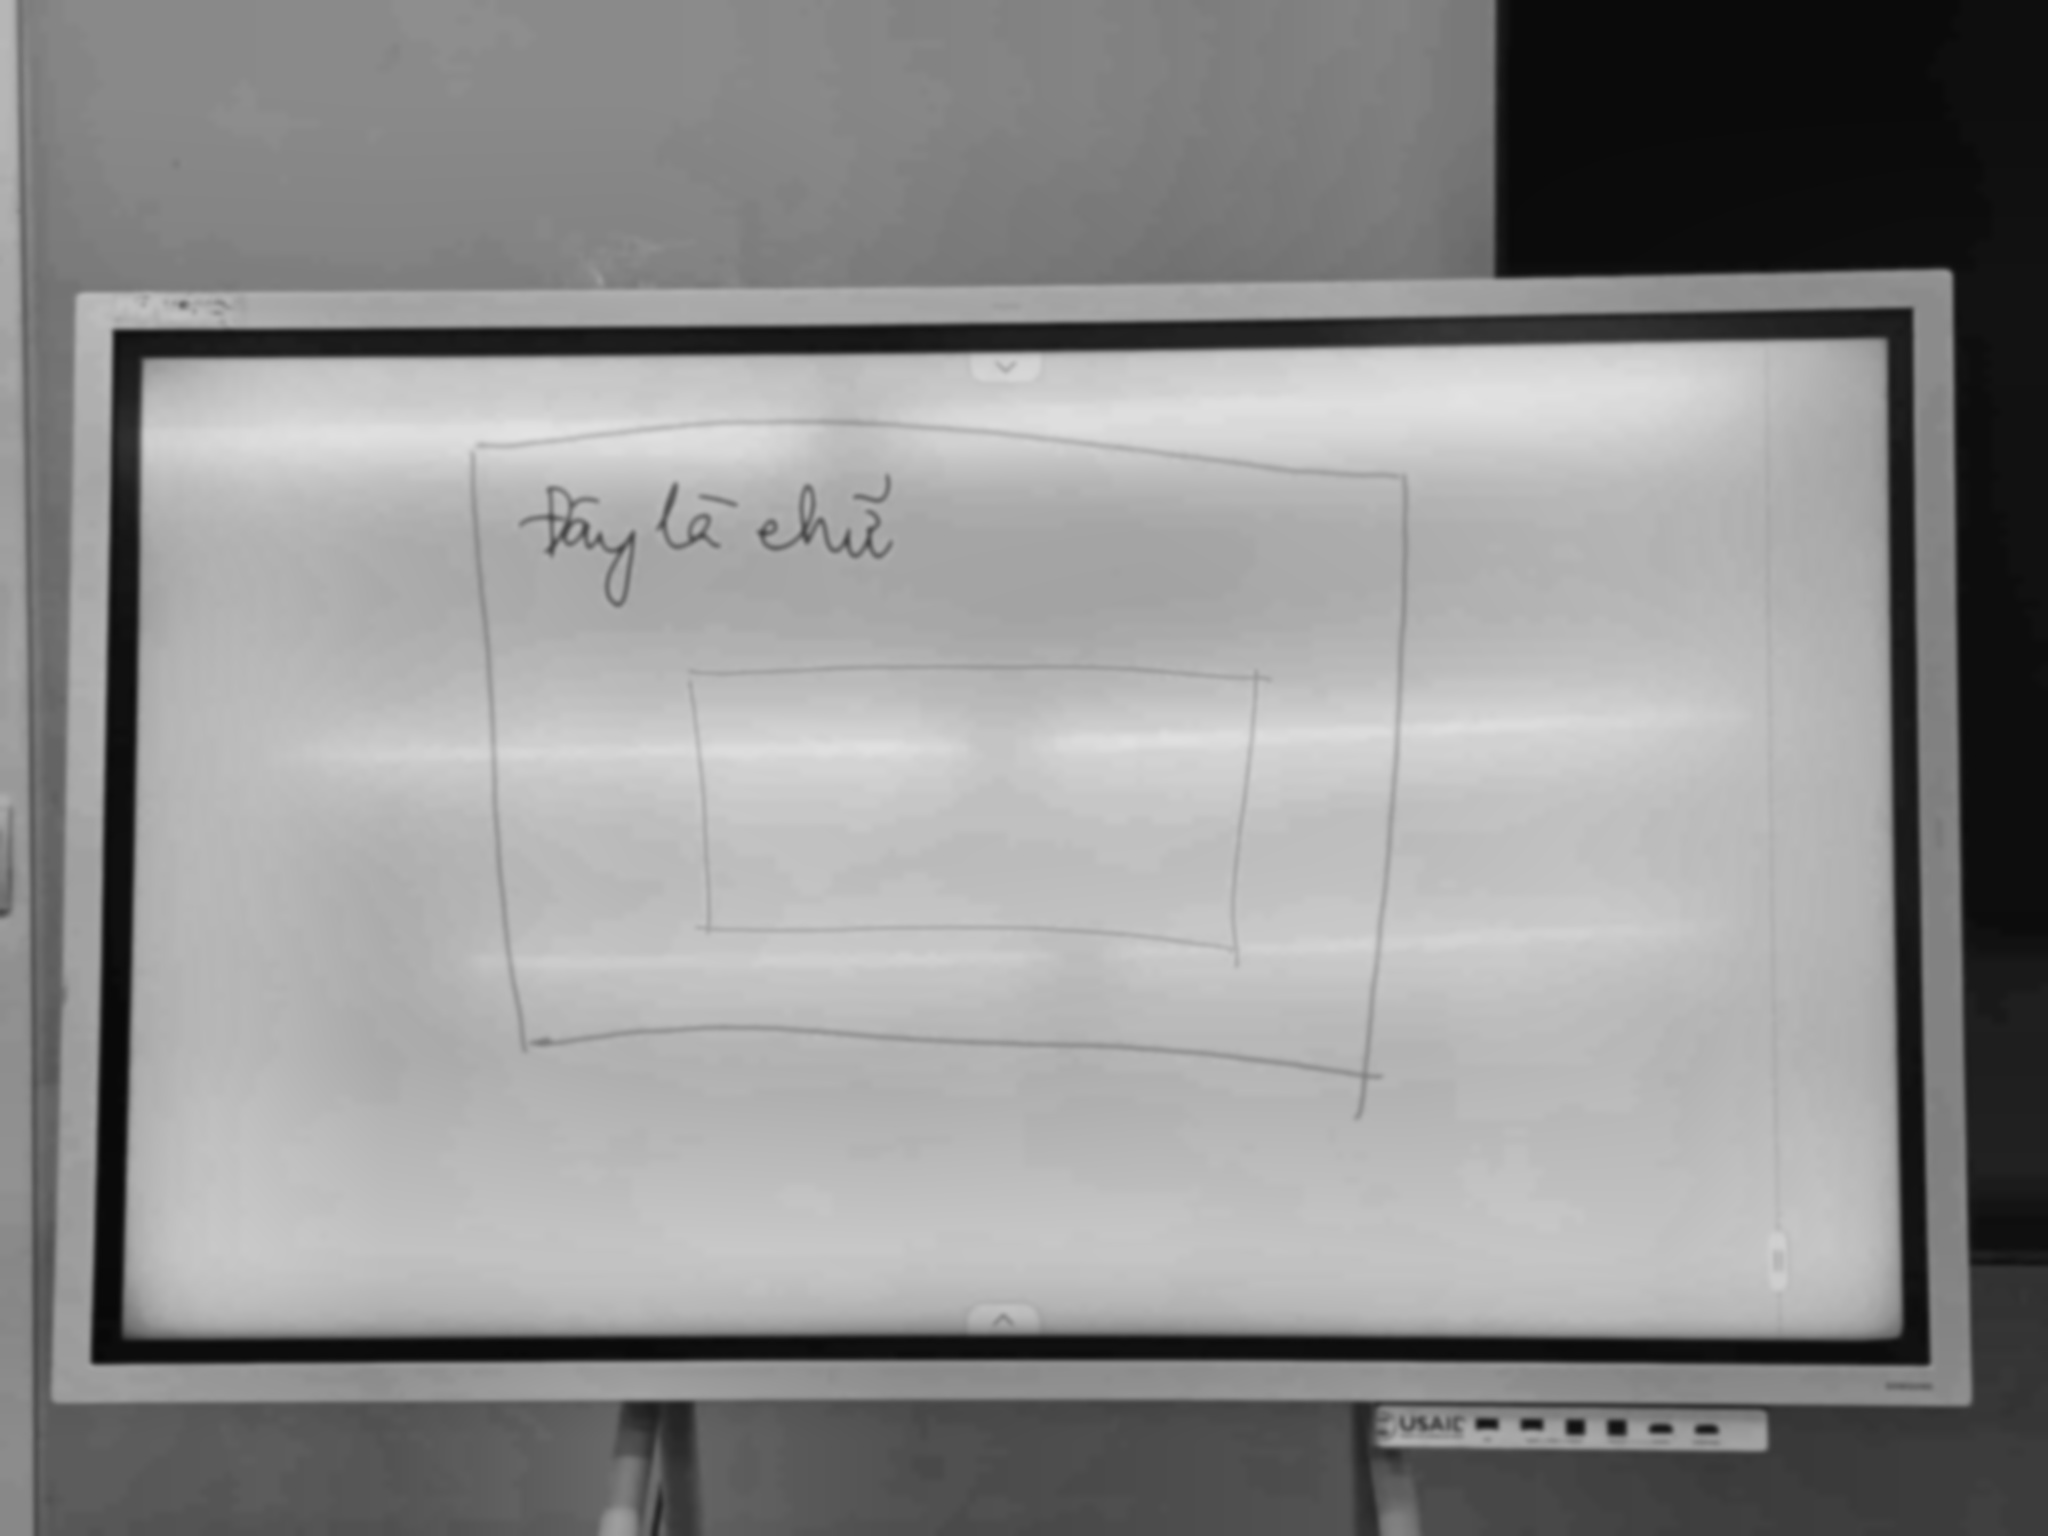 Đây là chữ
USAID